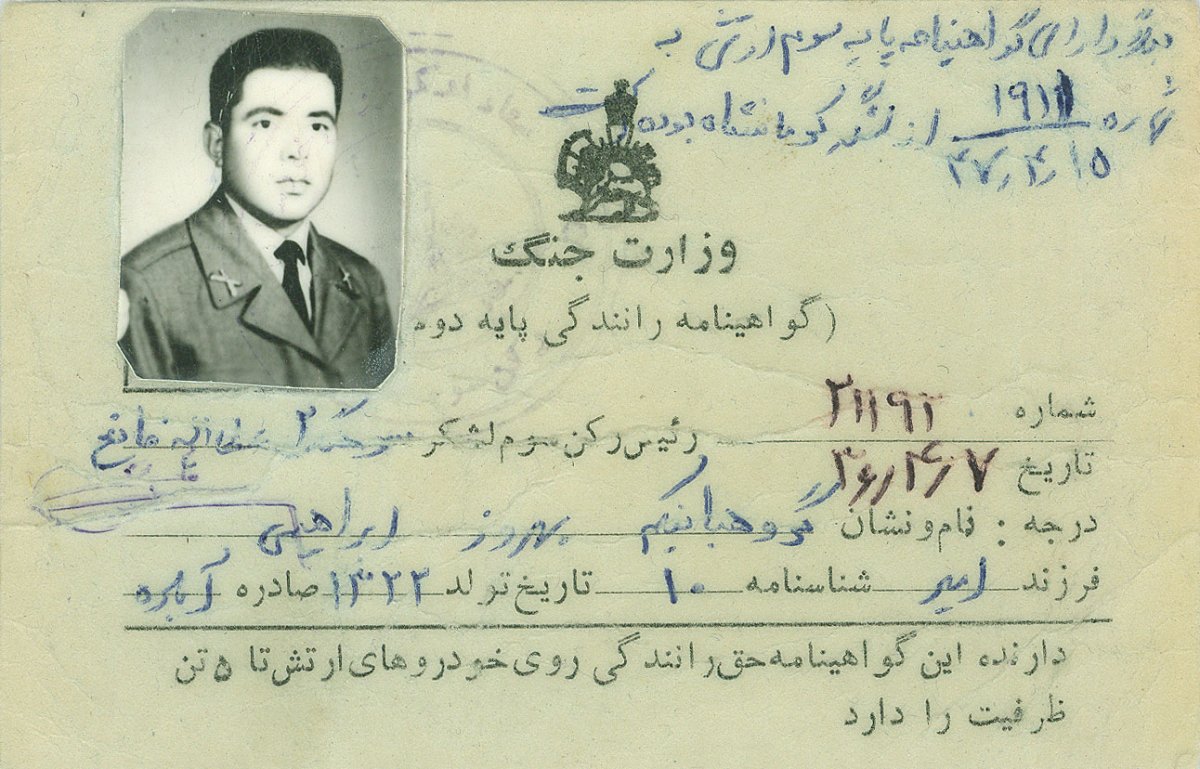 دارای گواهینامه پایه سوم ارتش به
شماره ۱۹۱۱ از لشگر کرمانشاه بوده است
۴۷٫۴٫۱۵
وزارت جنگ
(گواهینامه رانندگی پایه دوم
شماره ۳۱۱۹۲ رئیس رکن سوم لشکر سرهنگ ۲
تاریخ ۳۶٫۴٫۷
درجه : نام و نشان گروهبانیکم بهروز ابراهیمی
فرزند امیر شناسنامه ۱۰ تاریخ تولد ۱۳۲۲ صادره
دارنده این گواهینامه حق رانندگی روی خودروهای ارتش تا ۵ تن
ظرفیت را دارد